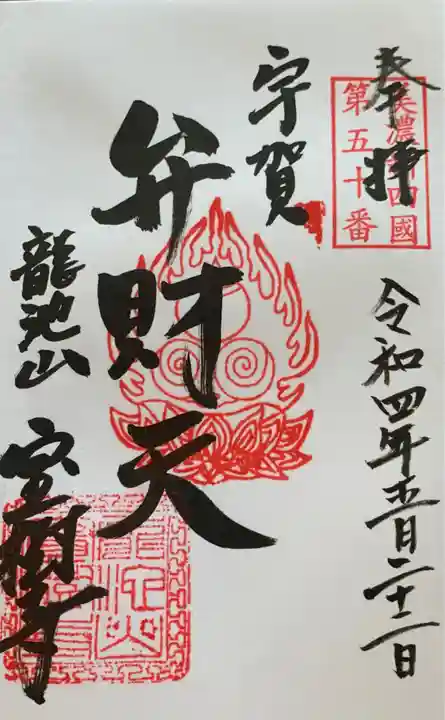 奉拝
美濃新四國
第五十番
令和四年五月二十二日
宇賀
弁財天
龍池山
宝樹寺